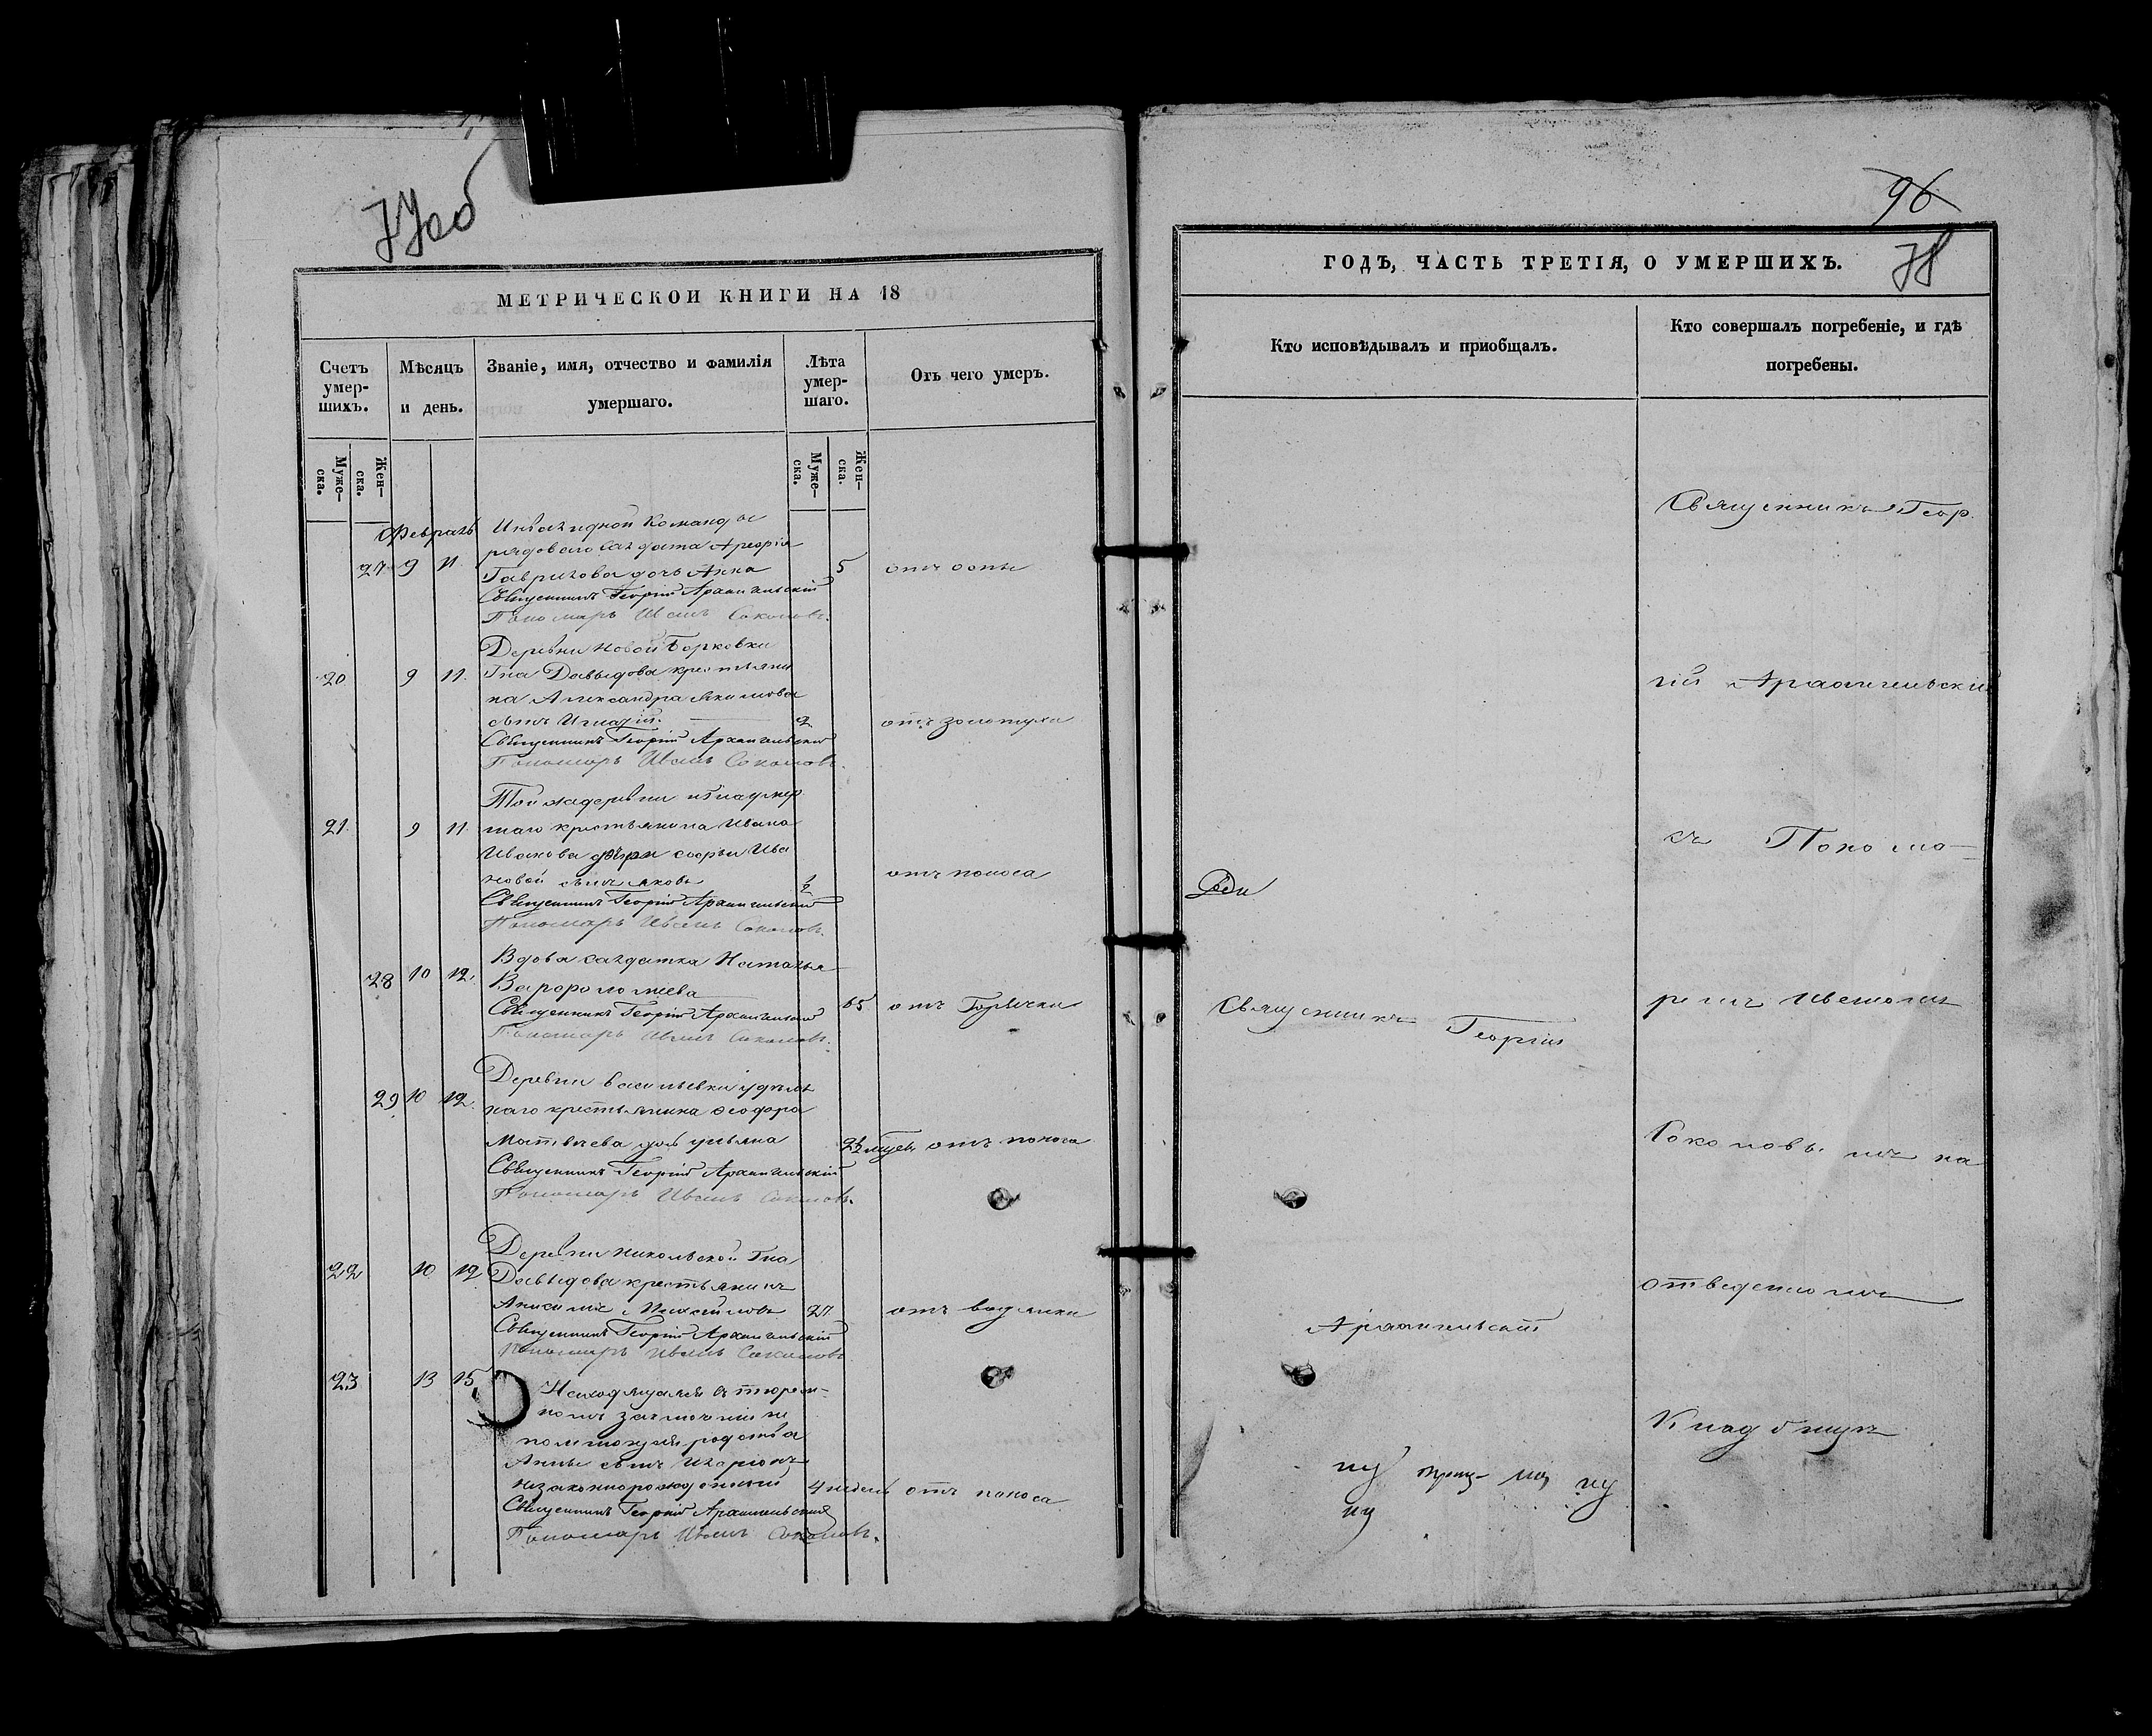 77об
МЕТРИЧЕСКОЙ КНИГИ НА 18
Счетъ умер-шихъ.
Мѣсяцъ и день.
Званіе, имя, отчество и фамилія умершаго.
Лѣта умер-шаго.
Отъ чего умеръ.
Муже-ска.
Жен-ска.
Муже-ска.
Жен-ска.
Февраль Инвалидной Команды
рядоваго Салдата
27 9 11 Гаврилова дочь Анна 5 отъ оспы
Священникъ Георгій Архангельскій
Пономарь Иванъ Соколовъ.
Деревни Новой Борковки
20 9 11. Гна Давыдова крестьяни
на Александра Якимова
сынъ Игнатій. 2 отъ золотухи
Священникъ Георгій Архангельскій
Пономарь Иванъ Соколовъ.
Той жа деревни
21. 9 11. шаго крестьянина Ивана
Иванова дочери Ива
новой сынъ Яковъ 1/2 отъ поноса
Священникъ Георгій Архангельскій
Пономарь Иванъ Соколовъ.
Вдова салдатка Наталья
28 10 12. Варфоломеева
65 отъ Горячки
Священникъ Георгій Архангельскій
Пономарь Иванъ Соколовъ.
Деревни Васильевки удѣль
29 10 12. наго крестьянина Феодора
Матвѣева дочь Ульяна отъ поноса
Священникъ Георгій Архангельскій
Пономарь Иванъ Соколовъ.
Деревни Никольской Гна
22 10 12 Давыдова крестьянинъ
Анисимъ Михайловъ 27. отъ водянки
Священникъ Георгій Архангельскій
Пономарь Иванъ Соколовъ
23 13 15 Находящаяся въ тюрем-
номъ заключеніи не
помнющая родства
Анны сынъ Иларіонъ
незаконнорожденный 4 недель отъ поноса
Священникъ Георгій Архангельскій
Пономарь Иванъ Соколовъ.
96
78
ГОДЪ, ЧАСТЬ ТРЕТІЯ, О УМЕРШИХЪ.
Кто исповѣдывалъ и приобщалъ.
Кто совершалъ погребеніе, и гдѣ погребены.
Священникъ Геор
гій Архангельскій
съ Понома-
ремъ Иваномъ
Соколовымъ на
отведенномъ
Кладбищѣ
Священникъ Георгій
Архангельскій